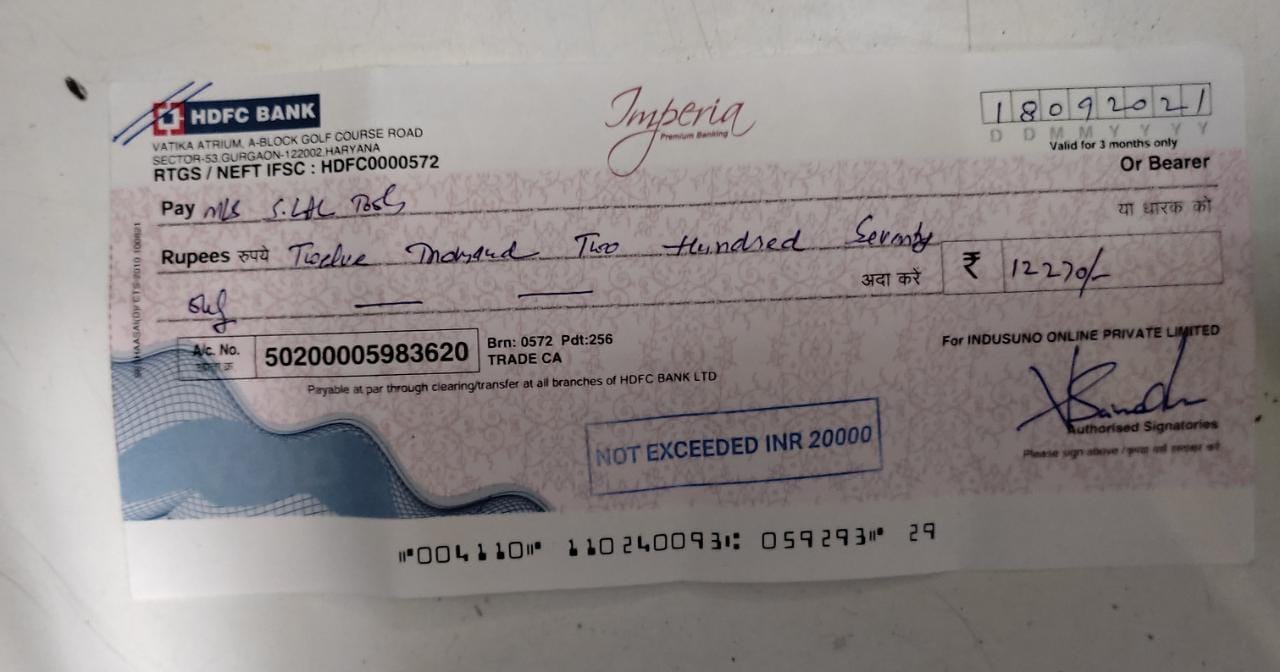 HDFC BANK
VATIKA ATRIUM, A-BLOCK GOLF COURSE ROAD
SECTOR-53,GURGAON-122002,HARYANA
RTGS / NEFT IFSC : HDFC0000572
Imperia
Premium Banking
18092021
D D M M Y Y Y Y
Valid for 3 months only
Or Bearer
या धारक को
Pay M/S S.LAL
Rupees रुपये Twelve Thousand Two Hundred Seventy
only
अदा करें ₹ 12270/-
A/c. No. 50200005983620
Brn: 0572 Pdt:256
TRADE CA
Payable at par through clearing/transfer at all branches of HDFC BANK LTD
For INDUSUNO ONLINE PRIVATE LIMITED
Authorised Signatories
Please sign above /
NOT EXCEEDED INR 20000
⑈004110⑈ 110240093⑆ 059293⑈ 29